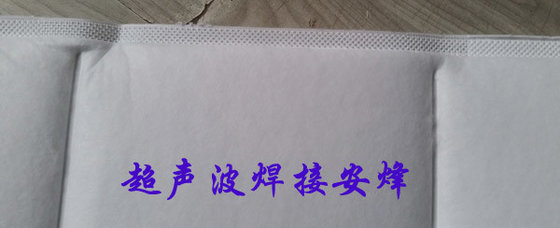 超声波焊接安烽